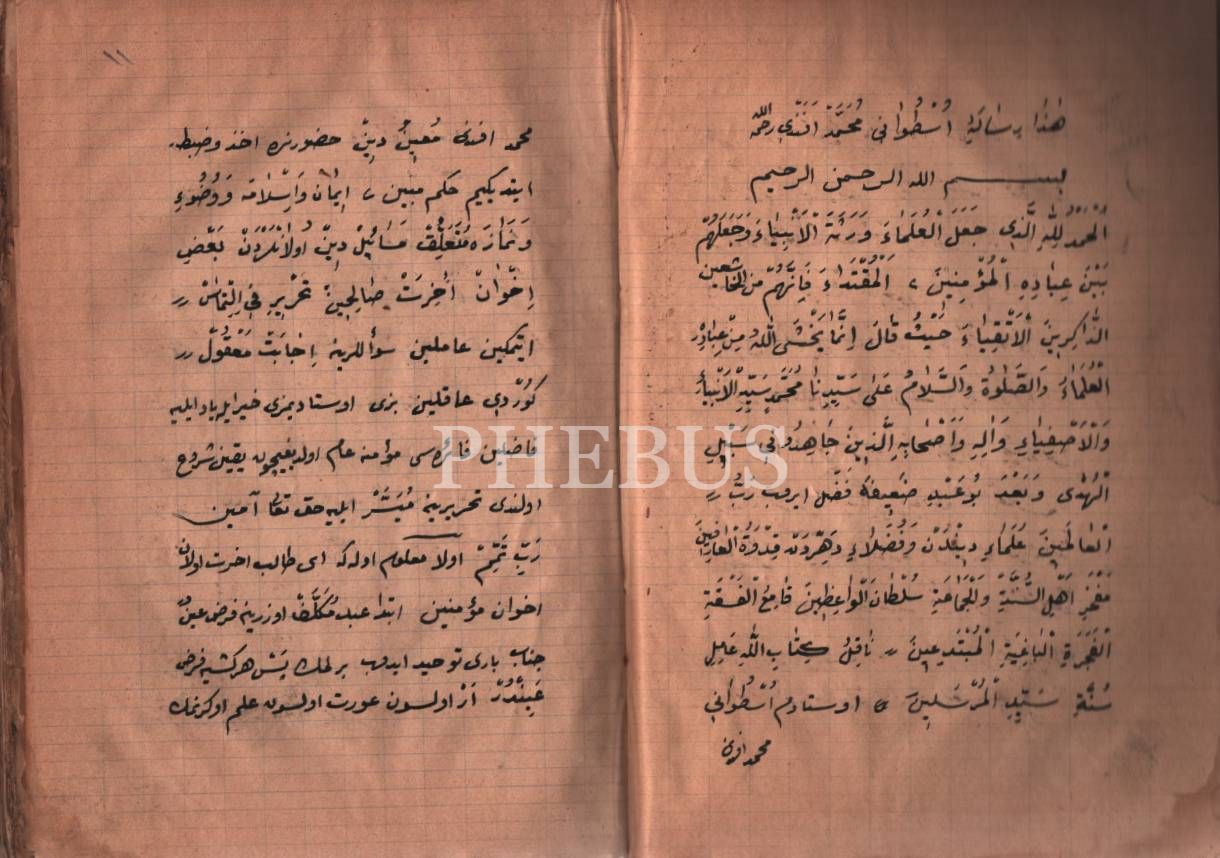 هٰذَا رِسَالَةِ اُسْطُوَانِي مُحَمَّدْ اَفَنْدِي رَحِمَهُ اللّٰه
بسم الله الرحمن الرحيم
اَلْحَمْدُ لِلّٰهِ الَّذِي جَعَلَ الْعُلَمَاءَ وَرَثَةَ الْاَنْبِيَاءِ وَجَعَلَهُمْ
بَيْنَ عِبَادِهِ الْمُؤْمِنِينَ الْمُقْتَدَاءَ فَاِنَّهُمْ مِنَ الْخَاشِعِينَ
الذَّاكِرِينَ الْاَتْقِيَاءِ حَيْثُ قَالَ اِنَّمَا يَخْشَى اللّٰهَ مِنْ عِبَادِهِ
الْعُلَمَاءُ وَالصَّلٰوةُ وَالسَّلَامُ عَلَى سَيِّدِنَا مُحَمَّدٍ سَيِّدِ الْاَنْبِيَاءِ
وَالْاَصْفِيَاءِ وَاٰلِهِ وَاَصْحَابِهِ الَّذِينَ جَاهَدُوا فِي سَبِيلِ
الْهُدٰى وَبَعْدُ بُو عَبْدِ ضَعِيفَهْ فَضْل ايدوب رَبُّ
الْعَالَمِينَ عُلَمَاءِ دِينْدَنْ وَفُضَلَاءِ دَهِرْدَنْ قِدْوَةُ الْعَارِفِينَ
مَفْخَرِ اَهْلِ السُّنَّةِ وَالْجَمَاعَةِ سُلْطَانُ الْوَاعِظِينَ قَامِعُ الْفَسَقَةِ
الْفَجَرَةِ الْبَاغِيَةِ الْمُبْتَدِعِينَ نَاقِلُ كِتَابِ اللّٰهِ عَامِلِ
سُنَّةِ سَيِّدِ الْمُرْسَلِينَ اوستادم اُسْطُوَانِي
محمد افندى
١١
محمد افندى مُعِينُ دِينْ حضورنده اخذ وضبط
ايتديكيم حكم مبين اِيمَانْ وَاِسْلَامَه وَوُضُوءِ
وَنَمَازَه مُتَعَلِّقْ مَسَائِلِ دِينْ اُولَانْلَرْدَنْ بَعْضِ
اِخْوَانْ اٰخِرَتْ صَالِحِينْ تَحْرِيرِ فِي الِتْمَاسْ
ايتمكين عاملين سوأللرينه اِجَابَتْ مَعْقُولْ
كُورْدِي عاقلين بزى اوستاديمزى خيرايله ياد ايليه
فاضلين فائده سى مؤمنه عام اولديغيچون يقين شروع
اولندى تحريرينه مُيَسَّرْ ايليه حق تعا آمين
رَبِّ تَمِّمْ اولا معلوم اوله كه اى طالب اخرت اولان
اخوان مؤمنين ابتدا عبد مُكَلَّفْ اوزرينه فرض عين
جناب بارى توحيد ايدوب بر لمك يَسْ هر كشيه فرض
عَيْنْدُرْ اَرْ اولسون عورت اولسون علم اوكرنمك
PHEBUS